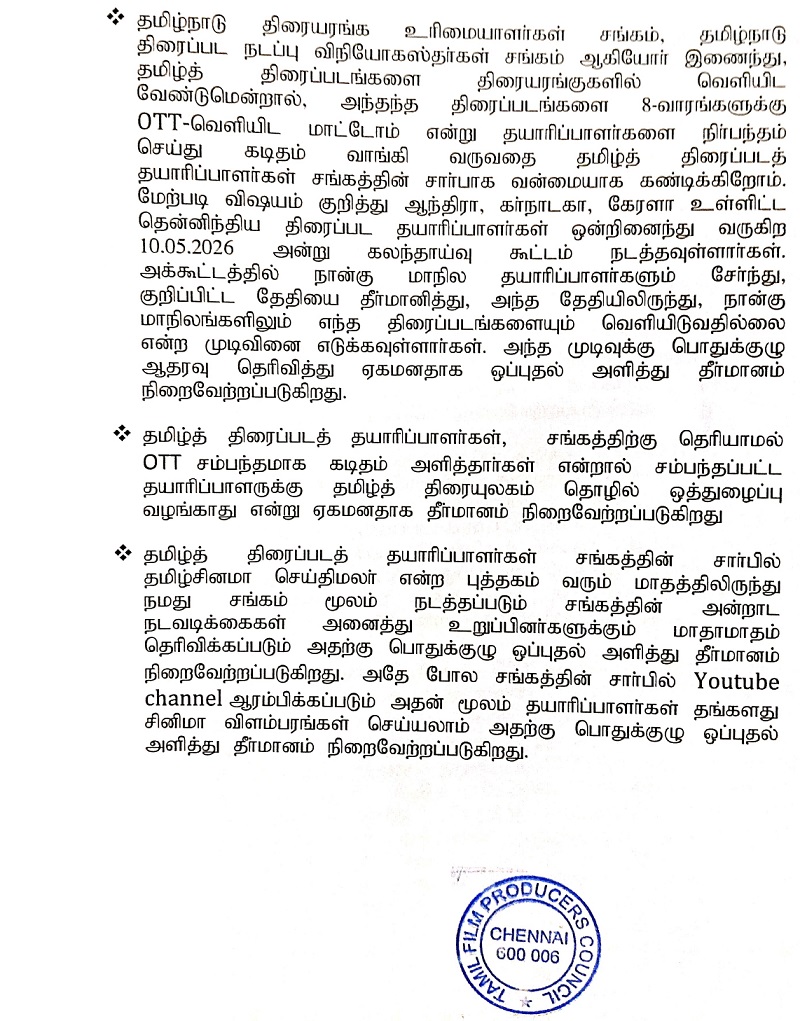 ❖ தமிழ்நாடு திரையரங்க உரிமையாளர்கள் சங்கம், தமிழ்நாடு
திரைப்பட நடப்பு விநியோகஸ்தர்கள் சங்கம் ஆகியோர் இணைந்து,
தமிழ்த் திரைப்படங்களை திரையரங்குகளில் வெளியிட
வேண்டுமென்றால், அந்தந்த திரைப்படங்களை 8-வாரங்களுக்கு
OTT-வெளியிட மாட்டோம் என்று தயாரிப்பாளர்களை நிர்பந்தம்
செய்து கடிதம் வாங்கி வருவதை தமிழ்த் திரைப்படத்
தயாரிப்பாளர்கள் சங்கத்தின் சார்பாக வன்மையாக கண்டிக்கிறோம்.
மேற்படி விஷயம் குறித்து ஆந்திரா, கர்நாடகா, கேரளா உள்ளிட்ட
தென்னிந்திய திரைப்பட தயாரிப்பாளர்கள் ஒன்றினைந்து வருகிற
10.05.2026 அன்று கலந்தாய்வு கூட்டம் நடத்தவுள்ளார்கள்.
அக்கூட்டத்தில் நான்கு மாநில தயாரிப்பாளர்களும் சேர்ந்து,
குறிப்பிட்ட தேதியை தீர்மானித்து, அந்த தேதியிலிருந்து, நான்கு
மாநிலங்களிலும் எந்த திரைப்படங்களையும் வெளியிடுவதில்லை
என்ற முடிவினை எடுக்கவுள்ளார்கள். அந்த முடிவுக்கு பொதுக்குழு
ஆதரவு தெரிவித்து ஏகமனதாக ஒப்புதல் அளித்து தீர்மானம்
நிறைவேற்றப்படுகிறது.
❖ தமிழ்த் திரைப்படத் தயாரிப்பாளர்கள், சங்கத்திற்கு தெரியாமல்
OTT சம்பந்தமாக கடிதம் அளித்தார்கள் என்றால் சம்பந்தப்பட்ட
தயாரிப்பாளருக்கு தமிழ்த் திரையுலகம் தொழில் ஒத்துழைப்பு
வழங்காது என்று ஏகமனதாக தீர்மானம் நிறைவேற்றப்படுகிறது
❖ தமிழ்த் திரைப்படத் தயாரிப்பாளர்கள் சங்கத்தின் சார்பில்
தமிழ்சினமா செய்திமலர் என்ற புத்தகம் வரும் மாதத்திலிருந்து
நமது சங்கம் மூலம் நடத்தப்படும் சங்கத்தின் அன்றாட
நடவடிக்கைகள் அனைத்து உறுப்பினர்களுக்கும் மாதாமாதம்
தெரிவிக்கப்படும் அதற்கு பொதுக்குழு ஒப்புதல் அளித்து தீர்மானம்
நிறைவேற்றப்படுகிறது. அதே போல சங்கத்தின் சார்பில் Youtube
channel ஆரம்பிக்கப்படும் அதன் மூலம் தயாரிப்பாளர்கள் தங்களது
சினிமா விளம்பரங்கள் செய்யலாம் அதற்கு பொதுக்குழு ஒப்புதல்
அளித்து தீர்மானம் நிறைவேற்றப்படுகிறது.
TAMIL FILM PRODUCERS COUNCIL
CHENNAI
600 006